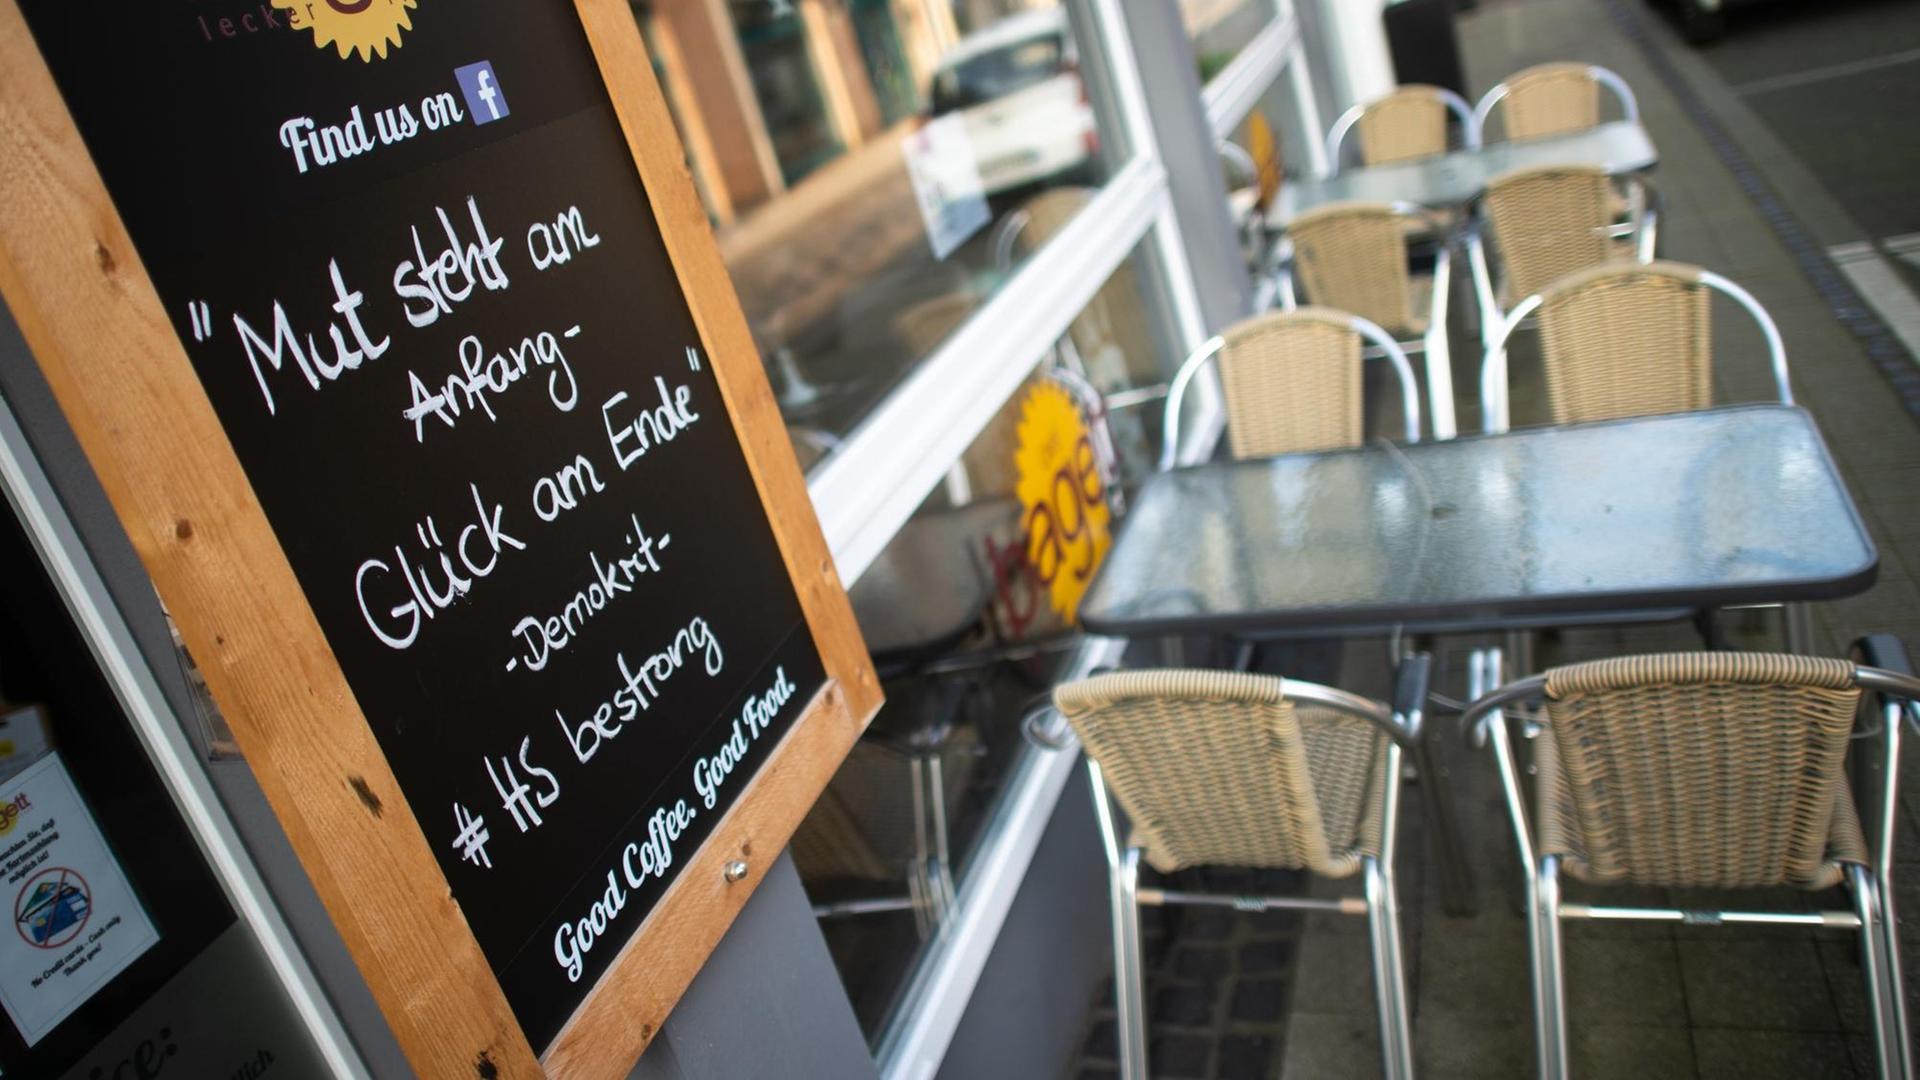 lecker
Find us on f
"Mut steht am
Anfang-
Glück am Ende"
-Demokrit-
# HS bestrong
Good Coffee. Good Food.
bage
gett
möglich ist!
No Credit cards - Cash only
Thank you!